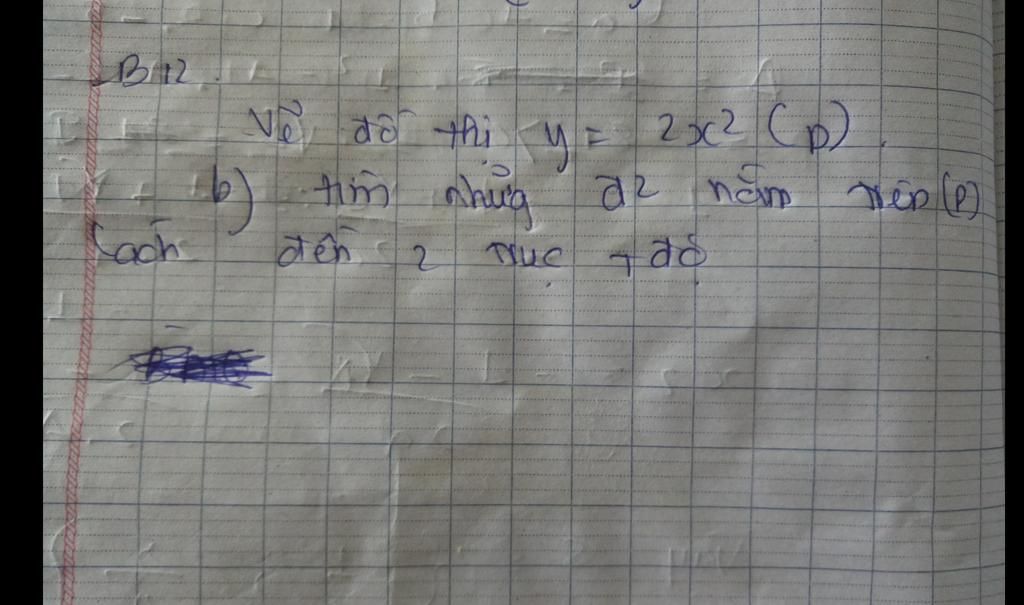 B 12.
Vẽ đồ thị y = 2x² (P).
b) tìm những đ² nằm trên (P)
Cách đến 2 trục T độ